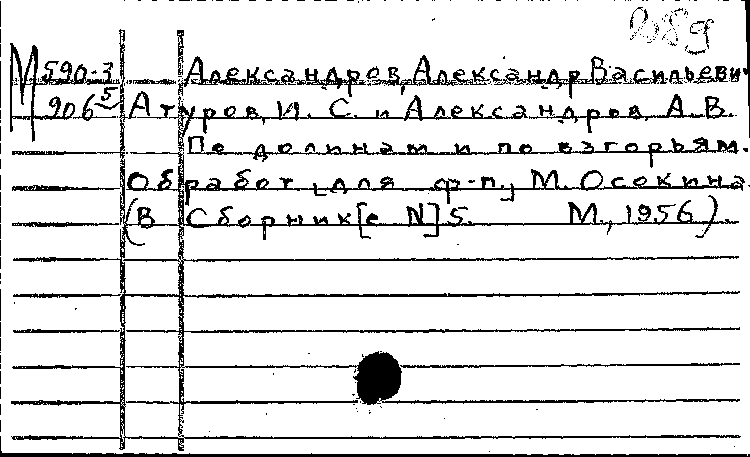 М 590-3 Александров, Александр Васильеви
906 5 Атуров, И. С. и Александров, А. В.
По долинам и по взгорьям.
Обработ. [для ф-п.] М. Осокина
(В Сборник[е N] 5. М., 1956).